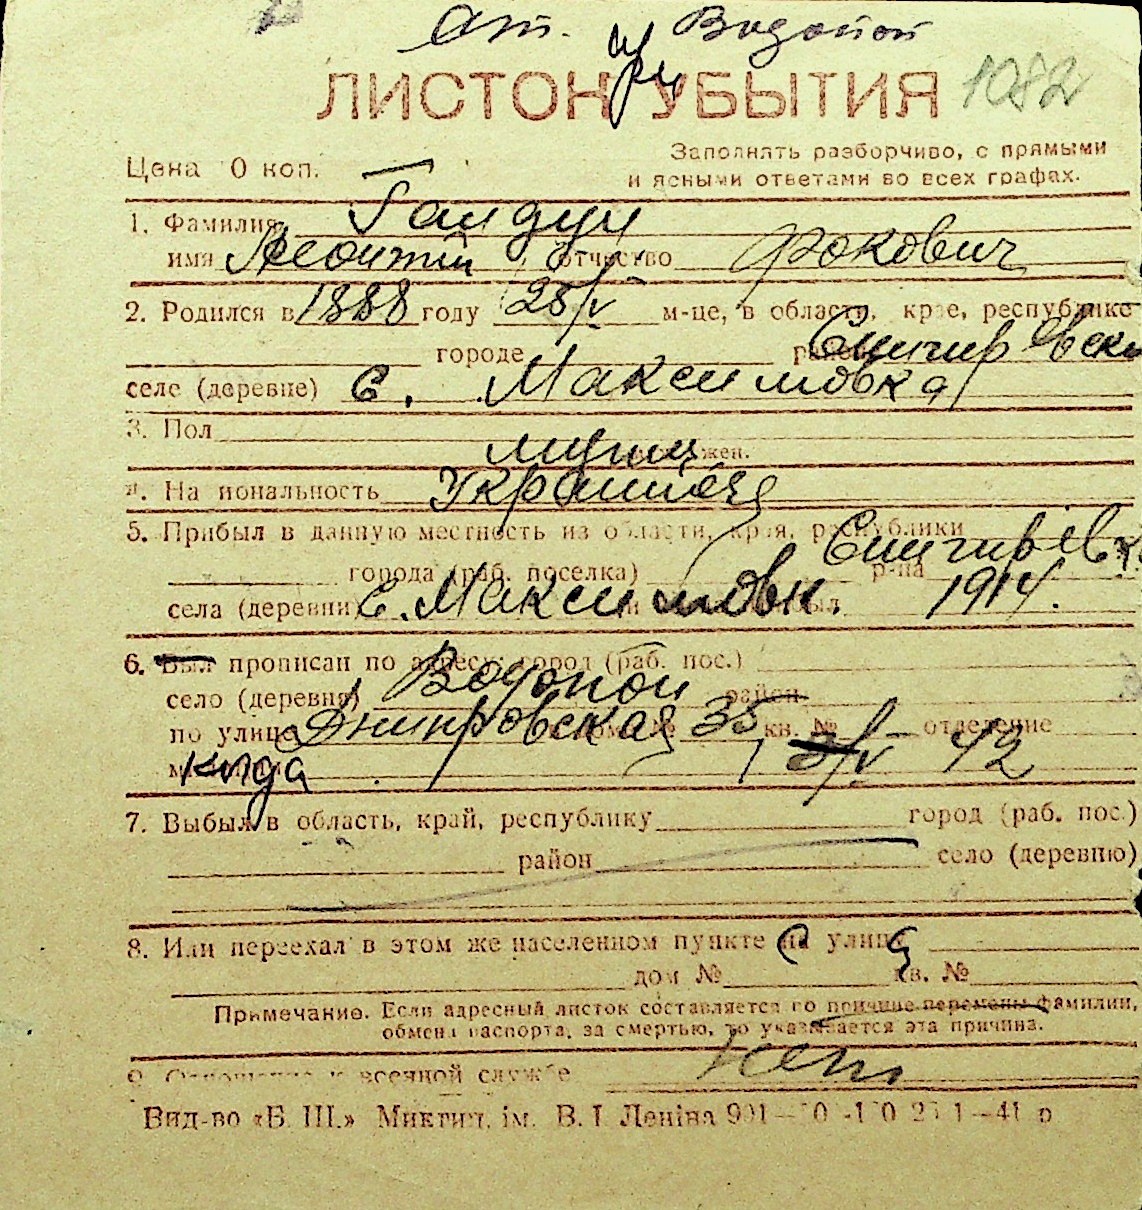 ст. Водопой
ЛИСТОК УБЫТИЯ 1082
Цена 10 коп.
Заполнять разборчиво, с прямыми
и ясными ответами во всех графах.
1. Фамилия Гайдук
имя Леонтий отчество Фокович
2. Родился в 1888 году 25/V м-це, в области, крае, республике
городе районе Снигиревски
селе (деревне) с. Максимовка
3. Пол мужч жен.
4. Национальность
5. Прибыл в данную местность из области, края, республики
города (раб. поселка) р-на Снигирев
села (деревни) с. Максимовк. 1914.
6. Был прописан по адресу: город (раб. пос.)
село (деревня) Водопой район
по улице Днипровская дом № 35 кв. № отделение
3/V 42
7. Выбыл в область, край, республику город (раб. пос.)
район село (деревню)
8. Или переехал в этом же населенном пункте на улицу
дом № кв. №
Примечание. Если адресный листок составляется по причине перемены фамилии,
обмена паспорта, за смертью, то указывается эта причина.
9. Отношение к военной службе нет
Вид-во «Б. Ш.» Миктип. ім. В. І. Леніна